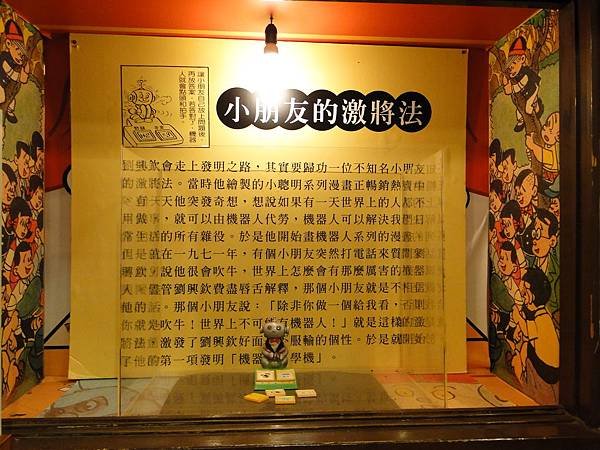 小朋友的激將法
讓小朋友自己放上問題後，
再放答案，若答對了，機器
人就會點頭和拍手。
劉興欽會走上發明之路，其實要歸功一位不知名小朋友
的激將法。當時他繪製的小聰明系列漫畫正暢銷熱賣中
有天他突發奇想，想說如果有一天世界上的人都不
用做，就可以由機器人代勞，機器人可以解決我們日
常生活的所有雜役。於是他開始畫機器人系列的漫畫
但是就在一九七一年，有個小朋友突然打電話來質問劉
興欽，說他很會吹牛，世界上怎麼會有那麼厲害的機器
人？儘管劉興欽費盡唇舌解釋，那個小朋友就是不相信
他的話。那個小朋友說：「除非你做一個給我看，否則
你就是吹牛！世界上不可能有機器人！」就是這樣的激
將法，激發了劉興欽好面子不服輸的個性。於是就開始
了他的第一項發明「機器教學機」。